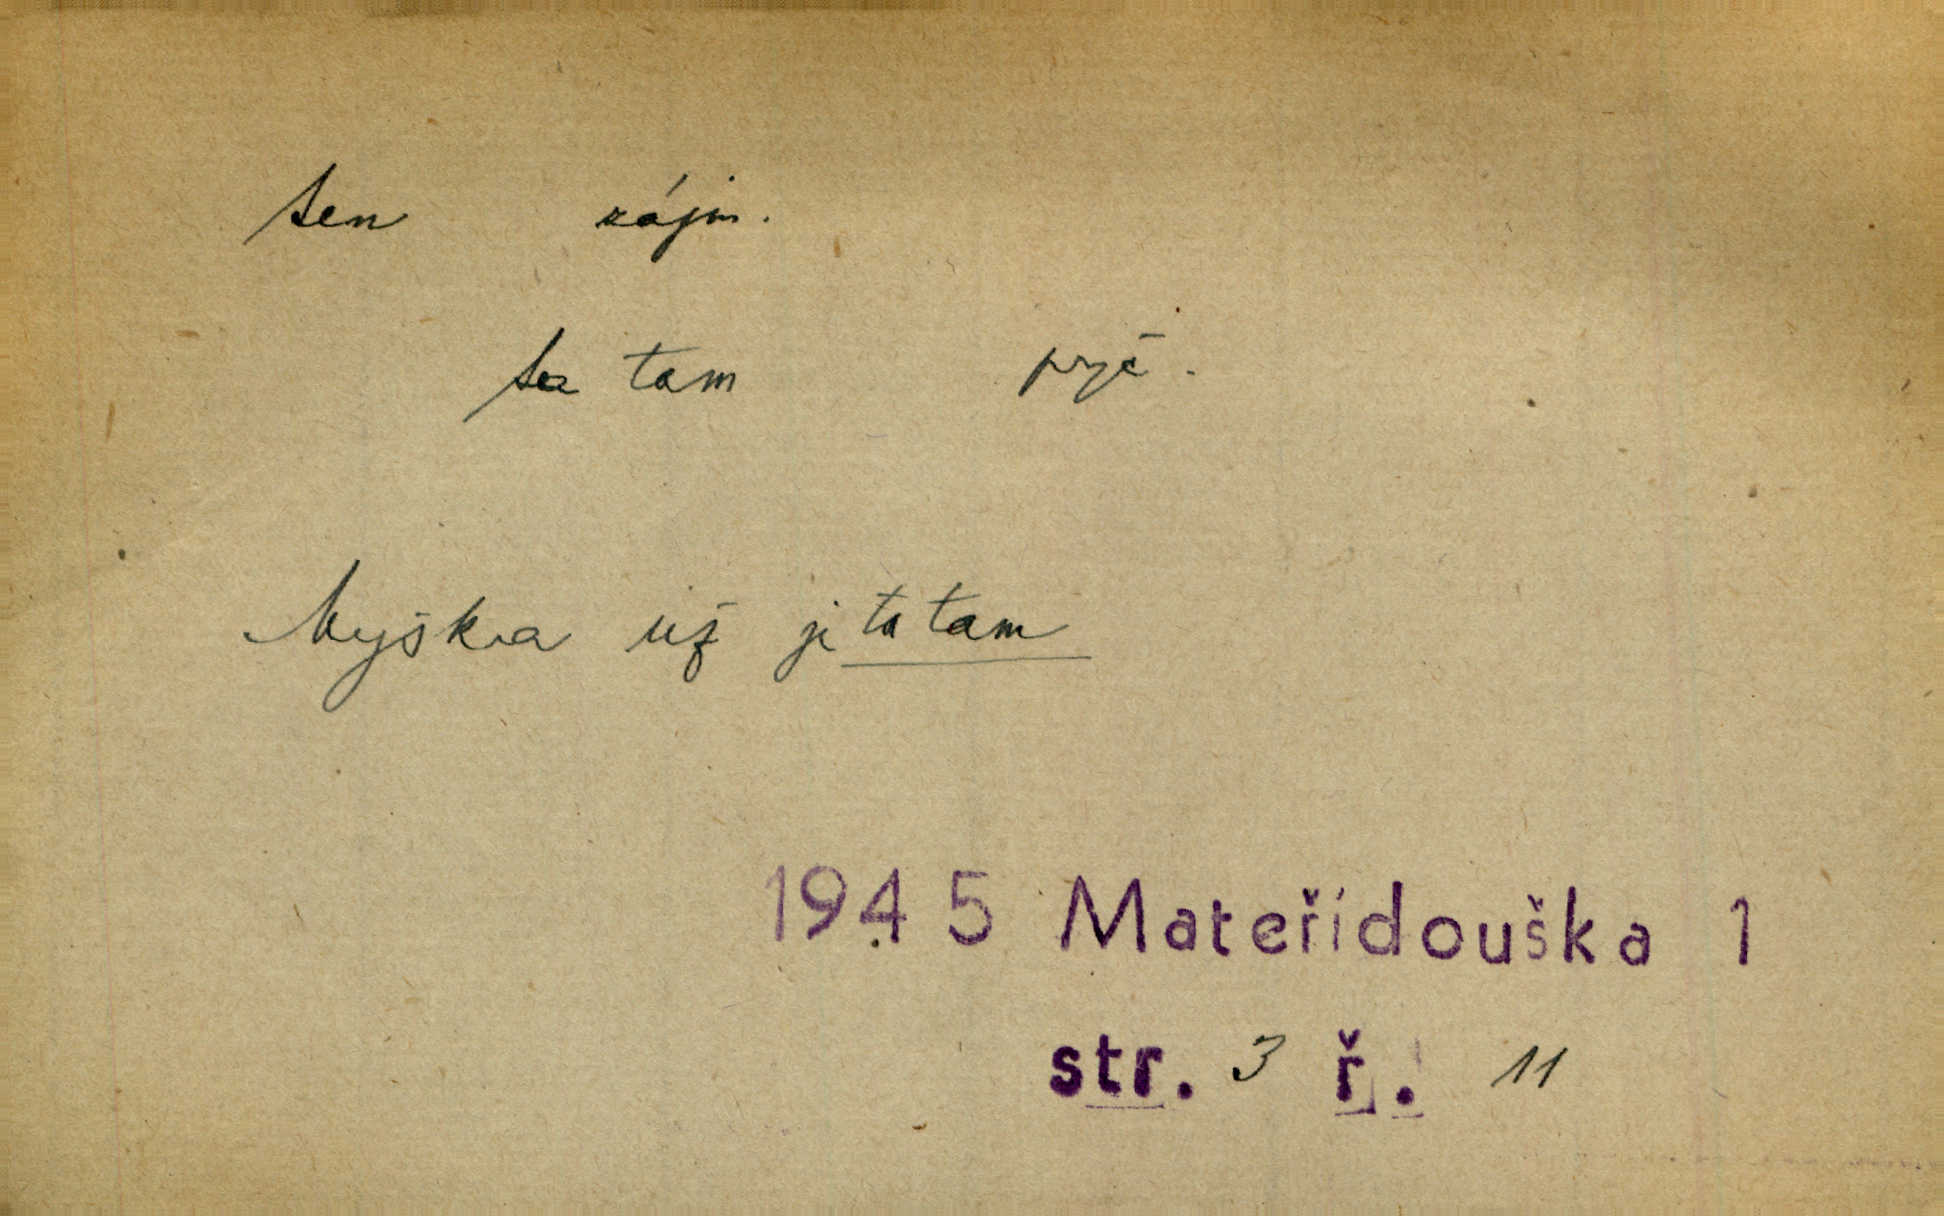 ten zájm.
ta tam pryč.
Myška už je ta tam
1945 Mateřídouška 1
str. 3 ř. 11